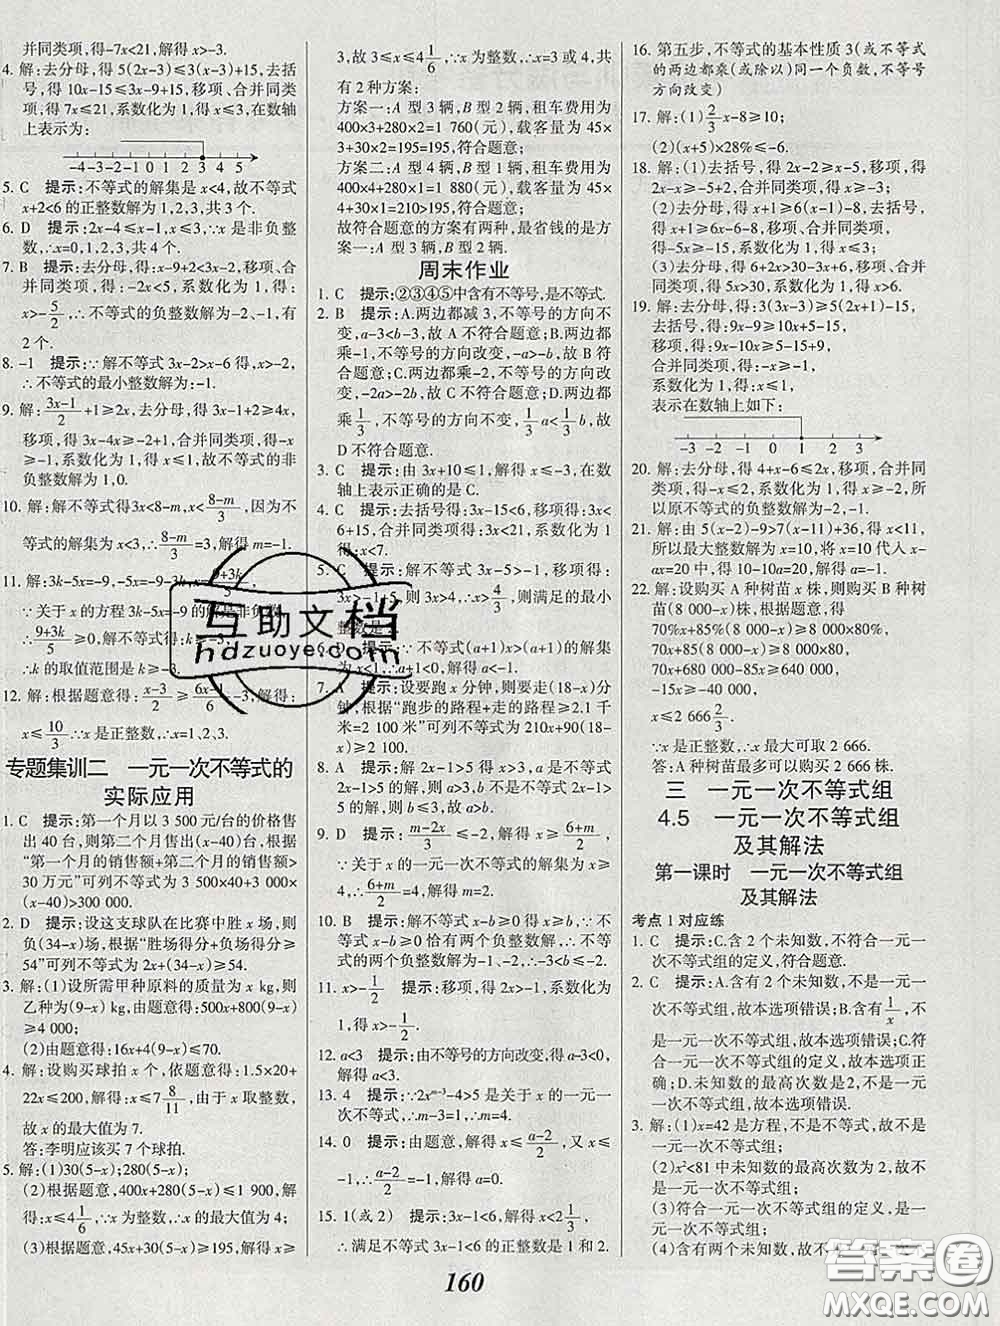 并同类项,得-7x<21,解得 x>-3.
4. 解:去分母,得 5(2x-3)≤3(x-3)+15,去括
号,得 10x-15≤3x-9+15,移项、合并同类项,
得 7x≤21,系数化为 1,得 x≤3,在数轴
上表示为:
-4 -3 -2 -1 0 1 2 3 4 5 6
5. C 提示:不等式的解集是 x<4,故不等式
x+2<6 的正整数解为 1,2,3,共 3 个.
6. D 提示:2x-4≤x-1,x≤3,∵x 是非负整
数,∴x=0,1,2,3,共 4 个.
7. B 提示:去分母,得:x-9+2<3x-2,移项、合
并同类项,得:-2x<5,系数化为 1,得:
x>-5/2,∴不等式的负整数解为-2、-1,有
2 个.
8. -1 提示:∵解不等式 3x-2>x-6 得,x>-2,
∴不等式的最小整数解为:-1.
9. 解:(3x-1)/2+1≥2x,去分母,得 3x-1+2≥4x,
移项,得 3x-4x≥-2+1,合并同类项,得-x≥
-1,系数化为 1,得 x≤1,故不等式的非
负整数解为 1,0.
10. 解:解不等式得3x<8-m,x<(8-m)/3,因为不
等式的解集为 x<3,∴(8-m)/3=3,解得 m=-1.
11. 解:3k-5x=-9,-5x=-9-3k,x=(9+3k)/5,
∵关于 x 的方程 3k-5x=-9 的解是非负数,
∴(9+3k)/5≥0,解得 k≥-3.
∴k 的取值范围是 k≥-3.
12. 解:根据题意得:(x-3)/2≥(6x-1)/6-3,解得
x≤10/3.∵x 是正整数,∴x=1、2、3.
专题集训二 一元一次不等式的
实际应用
1. C 提示:第一个月以 3 500 元/台的价格售
出 40 台,则第二个月售出(x-40)台,根据
“第一个月的销售额+第二个月的销售额>
30 万元”可列不等式为 3 500×40+3 000×
(x-40)>300000.
2. D 提示:设这支球队在比赛中胜 x 场,则
负(34-x)场,根据“胜场得分+负场得分≥
54”可列不等式为 2x+(34-x)≥54.
3. 解:(1)设所需甲种原料的质量为 x kg,则
乙种为(9-x) kg,由题意得:500x+800(9-x)
≥4 000;
(2)由题意得:16x+4(9-x)≤70.
4. 解:设购买球拍 x 个,依题意得:1.5×20+
22x≤200,解得:x≤7 8/11,由于 x 取整数,
故 x 的最大值为 7.
答:李明应该买 7 个球拍.
5. 解:(1)30(5-x);280(5-x);
(2)根据题意,400x+280(5-x)≤1 900,解
得:x≤4 1/6,∵x 为整数,∴x 的最大值为 4;
(3)根据题意,45x+30(5-x)≥195,解得 x≥
3,故 3≤x≤4 1/6,∵x 为整数,∴x=3或 4,共
有 2 种方案:
方案一:A 型 3 辆,B 型 2 辆,租车费用为
400×3+280×2=1 760(元),载客量为 45×
3+30×2=195=195,符合题意;
方案二:A 型 4 辆,B 型 1 辆,租车费用为
400×4+280×1=1 880(元),载客量为 45×
4+30×1=210>195,符合题意;
故符合题意的方案有两种,最省钱的是方
案一:A 型 3 辆,B 型 2 辆.
周末作业
1. C 提示:②③④⑤中含有不等号,是不等式.
2. B 提示:A.两边都减 3,不等号的方向不
变,a-3<b-3,故 A 不符合题意;B.两边都
乘-1,不等号的方向改变,-a>-b,故 B 符
合题意;C.两边都乘-2,不等号的方向改变,
-2a>-2b,故 C 不符合题意;D.两边都
乘1/3,不等号的方向不变,1/3a<1/3b,故
D 不符合题意.
3. C 提示:由 3x+10≤1,解得 x≤-3,在数
轴上表示正确的是 C.
4. C 提示:去括号得:3x-15<6,移项得:3x<
6+15,合并同类项得:3x<21,系数化为 1
得:x<7.
5. C 提示:不等式 3x-5>-1,移项得:
3x>-1+5,则 3x>4,x>4/3,则满足的最小
整数是 2.
6. D 提示:∵不等式(a+1)x>(a+1)的解集
为 x<1,∴a+1<0,解得:a<-1.
7. A 提示:设要跑 x 分钟,则要走(18-x)分
钟,根据“跑步的路程+走的路程≥2.1 千
米=2 100 米”可列不等式 210x+90(18-x)
≥2100.
8. A 提示:∵x=2 不是不等式 2x-1>5
的解,则不等式 2x-1>5
的解,则 x>3,故 a>3.
9. D 提示:(m-2x)/3≤-2,解得:x≥(6+m)/2,
∵关于 x 的一元一次不等式的解集为 x≥
4,∴(6+m)/2=4,解得 m=2.
10. B 提示:解不等式 x-b≥0 得 x≥b,∵不
等式 x-b≥0 恰有两个负整数解,∴x=
-1,-2,∴-3<b≤-2.
11. x>-1/2 提示:移项,得 2x>-1,系数化为
1,得 x>-1/2.
12. a<3 提示:由不等号的方向改变,得 a-3<0,
解得 a<3.
13. 4 提示:∵2xᵐ⁻³-4>5 是关于 x 的一元一
次不等式,∴m-3=1,∴m=4.
14. 0 提示:由题意,解得 x≤(a-2)/2,又 x≤
-1,∴(a-2)/2=-1,解得 a=0.
15. 1(或 2) 提示:3x-1<6,解得 x<2 1/3,
∴满足不等式 3x-1<6 的正整数是 1 和 2.
16. 第五步,不等式的基本性质 3(或不等式
的两边都乘(或除以)同一个负数,不等号
方向改变)
17. 解:(1)2/3x-8≥10;
(2)(x+5)×28%≤-6.
18. 解:(1)去括号,得 2x-2≥x-5,移项,得
2x-x≥-5+2,合并同类项,得 x≥-3;
(2)去分母,得 x+1≥6(x-1)-8,去括号,得
x+1≥6x-6-8,移项、合并同类项,得
-5x≥-15,系数化为 1,得 x≤3;
(3)去分母,得 6+2x>30-3x+6,移项、合并
同类项,得 5x>30,系数化为 1,得 x>6.
19. 解:去分母,得:3(3x-3)≥5(2x+1)-15,
去括号,得:9x-9≥10x+5-15,
移项,得:9x-10x≥5-15+9,
合并同类项,得:-x≥-1,
系数化为 1,得:x≤1,
表示在数轴上如下:
-3 -2 -1 0 1 2 3
20. 解:去分母,得 4+x-6≤2x,移项、合并同
类项,得-x≤2,系数化为 1,得 x≥-2,所
以原不等式的负整数解为-2,-1.
21. 解:由 5(x-2)-9>7(x-11)+36,得 x<11,
所以最大整数解为 x=10,将 x=10 代入 x-
ax=20 中,得 10-10a=20,解得 a=-1.
22. 解:设购买 A 种树苗 x 株,则购买 B 种树
苗(8 000-x)株,根据题意,得
70%x+85%(8 000-x)≥8 000×80%,
70x+85(8 000-x)≥8 000×80,
70x+680 000-85x≥640 000,
-15x≥-40 000,
x≤2 666 2/3.
∵x 是正整数,∴x 最大可取 2 666.
答:A 种树苗最多可以购买 2 666 株.
三 一元一次不等式组
4.5 一元一次不等式组
及其解法
第一课时 一元一次不等式组
及其解法
考点 1 对应练
1. C 提示:C.含 2 个未知数,不符合一元一
次不等式组的定义,符合题意.
2. C 提示:A.含有 2 个未知数,不是一元一
次不等式组,故本选项错误;B.含有1/x,不
是一元一次不等式组,故本选项错误;C.符
合一元一次不等式组的定义,故本选项正
确;D.未知数的最高次数是 2,不是一元一
次不等式组,故本选项错误.
3. 解:(1)x=42 是方程,不是不等式,故不是
一元一次不等式组;
(2)x²<81 中未知数的最高次数为 2,故不
是一元一次不等式组;
(3)符合一元一次不等式组的定义,是一
元一次不等式组;
(4)含有两个未知数,故不
160
互助文档
hdzuoye.com
答案圈
MXQE.COM